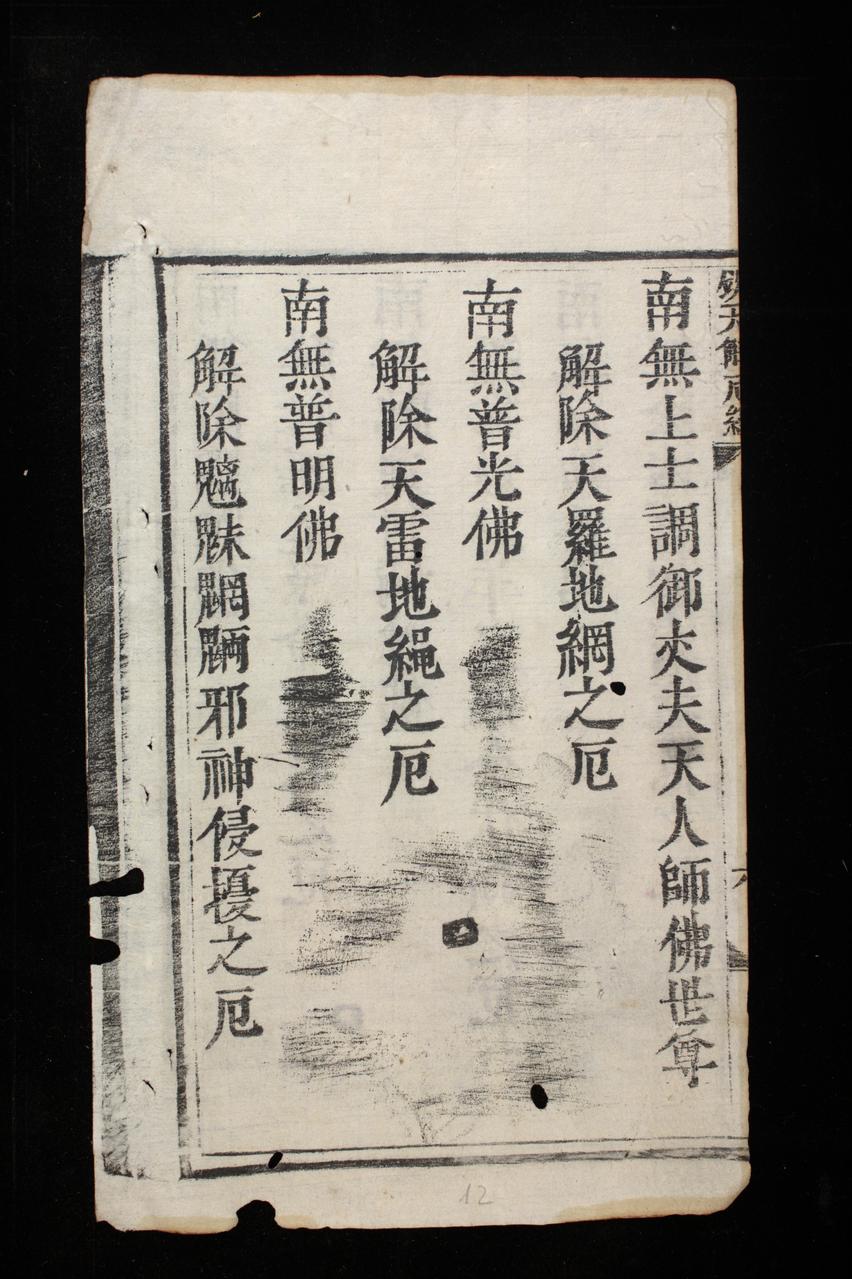 天解厄經
南無上士調御丈夫天人師佛世尊
解除天羅地網之厄
南無普光佛
解除天雷地繩之厄
南無普明佛
解除魑魅魍魎邪神侵擾之厄
12